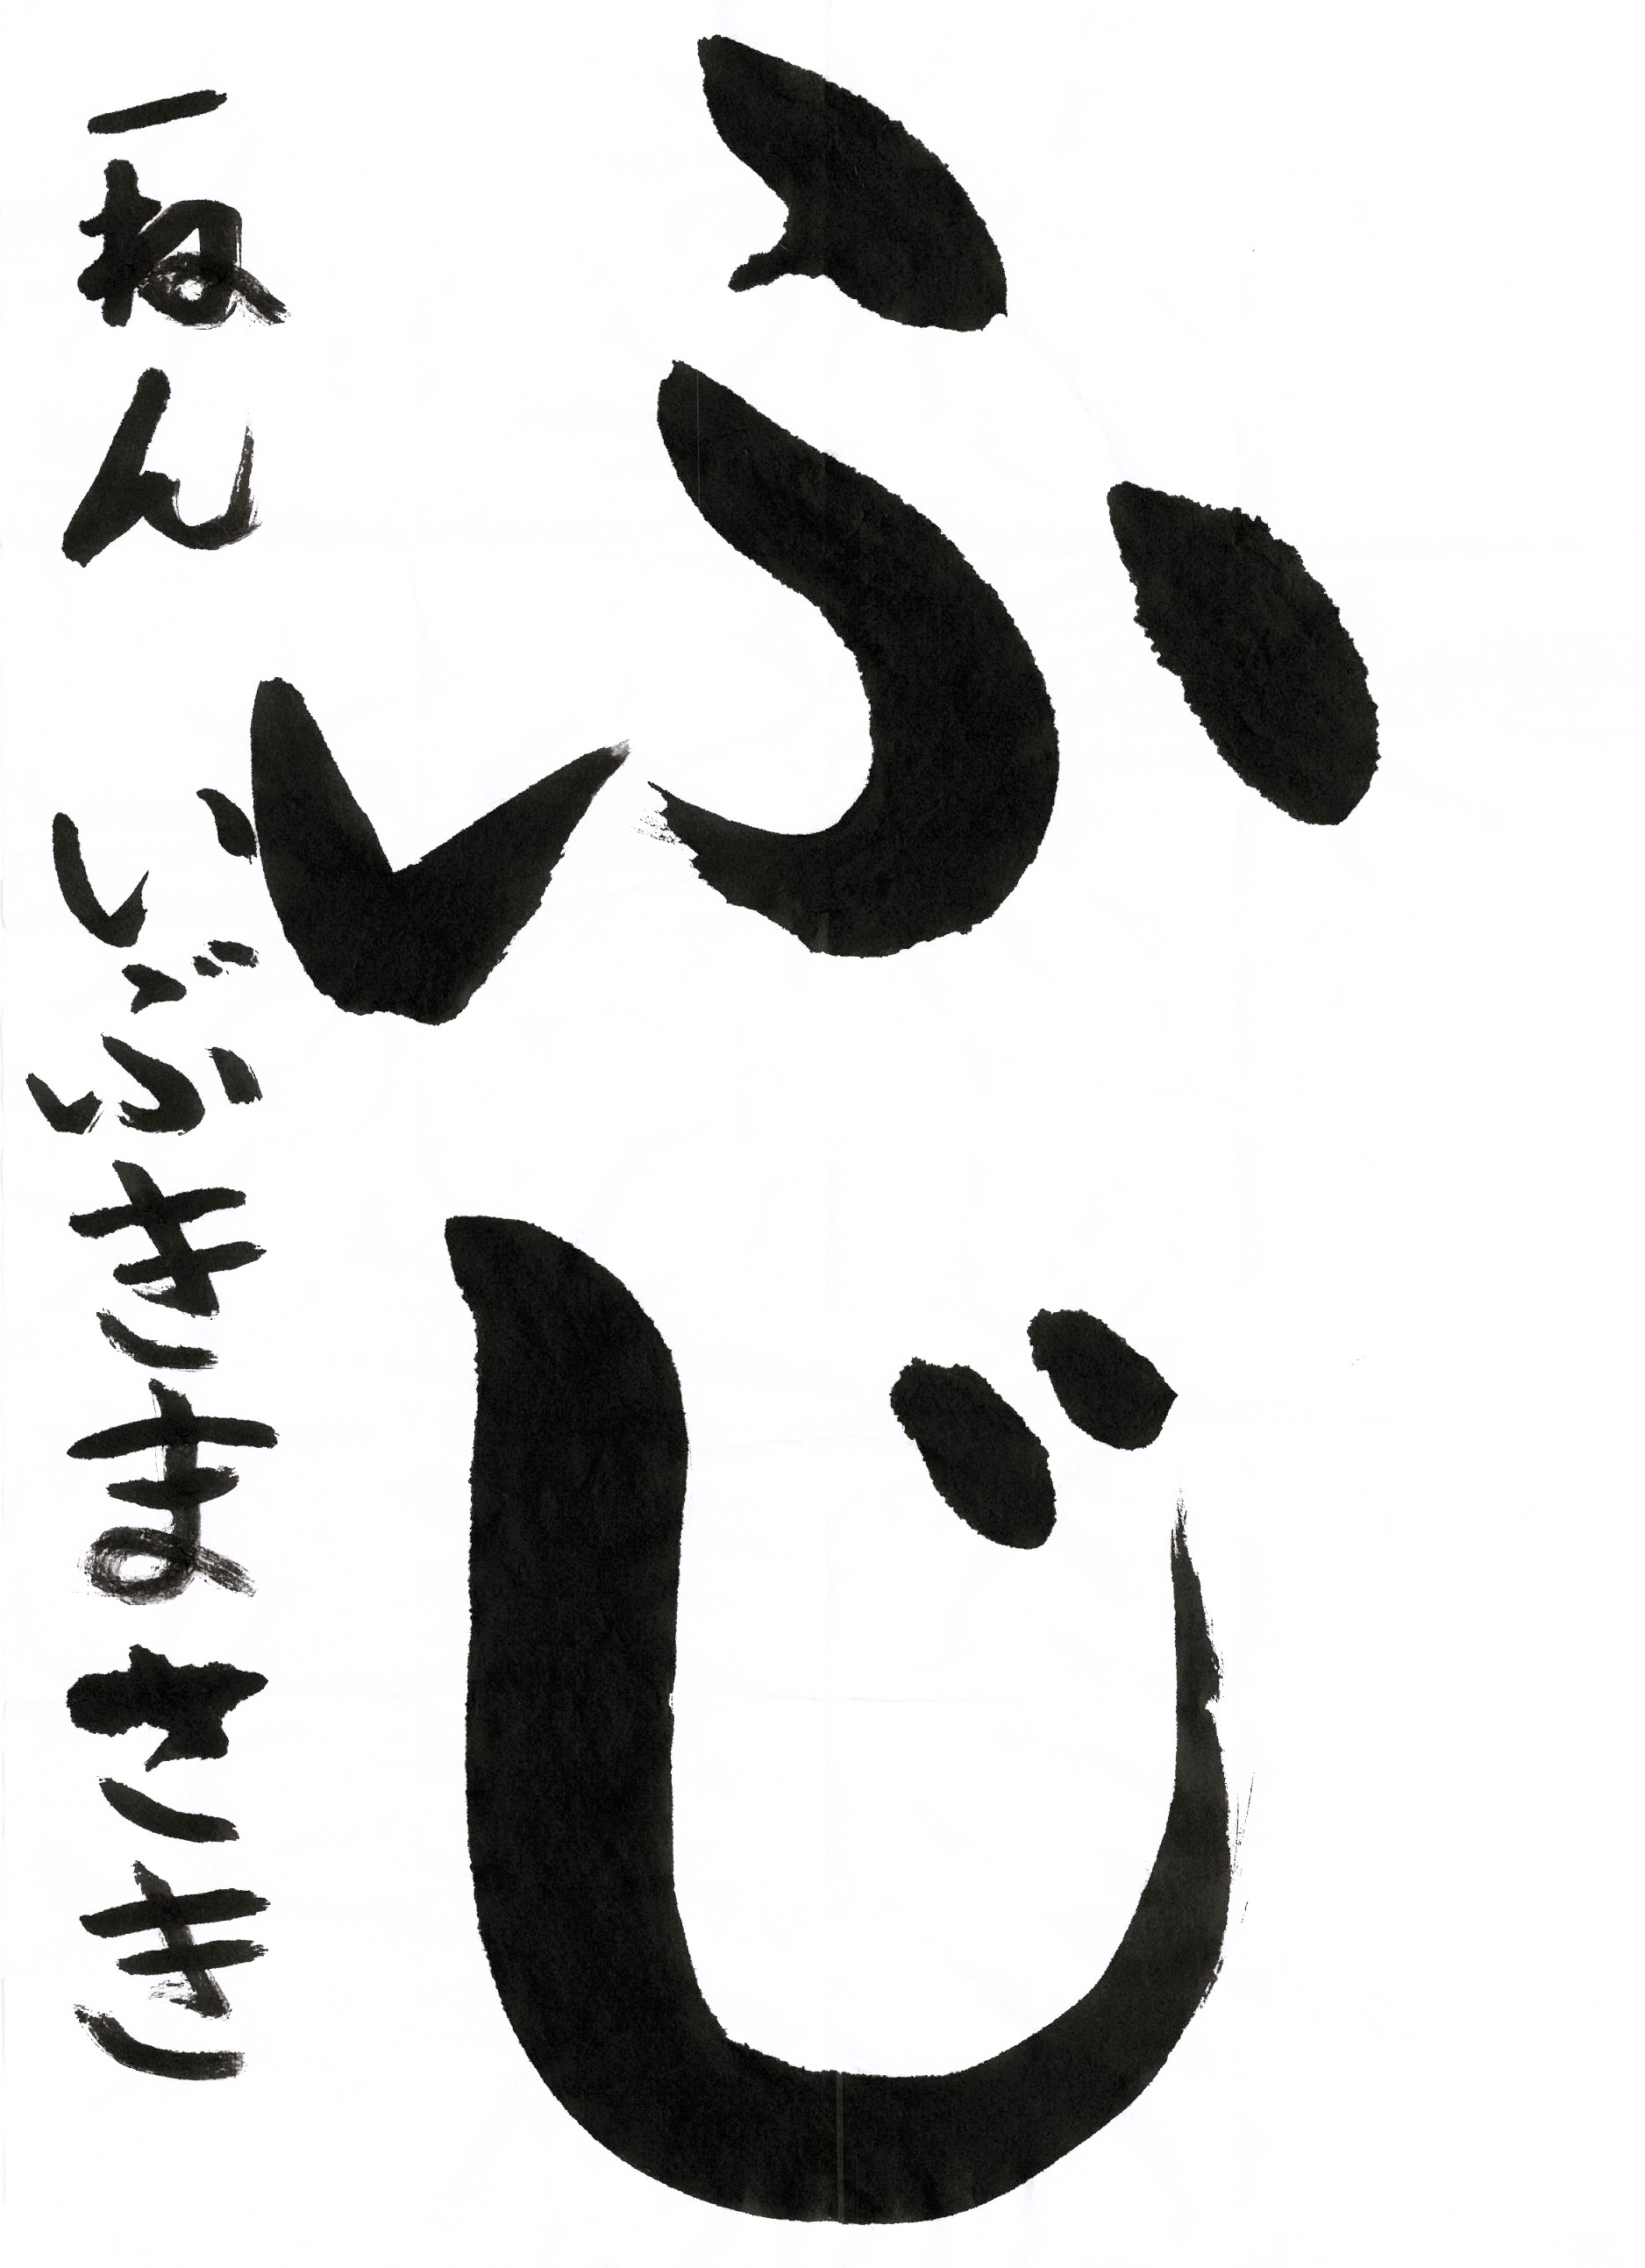 ふじ
一ねん いぶきまさき